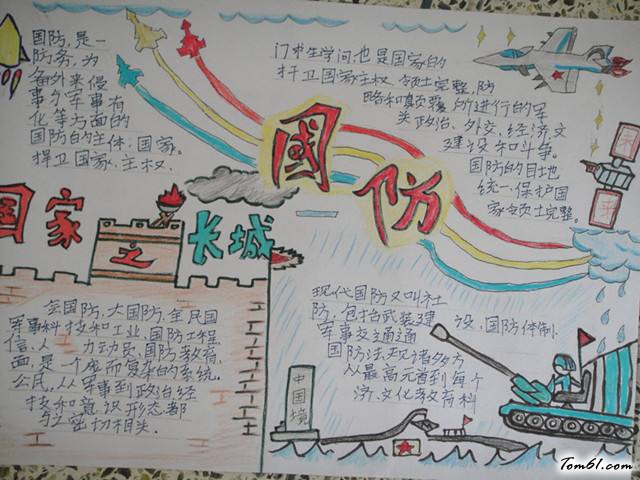 国防,是一
防务,为
备外来侵
事尔军事有
化等方面的
国防的主体,国家。
捍卫国家、主权.
门世生学问,也是国家的
捍卫国家主权、领土完整,防
略和真颠覆,所进行的军
类政治、外交、经济,文
建设和斗争。
国防的目地
统一,保护国
家领土完整。
國防
国家之长城
全国防,大国防,全民国
军事科技和工业,国防工程
信,人 力动员,国防教育.
面,是一个庞而复杂的系统,
公民,从军事到政治经
技和意识形态都
社密切相关。
现代国防又叫社
防,包括武装建 设、国防体制、
军事交通通
国防法规诸多方
从最高元首到每个
济、文化教育科
中国境
Tom61.com